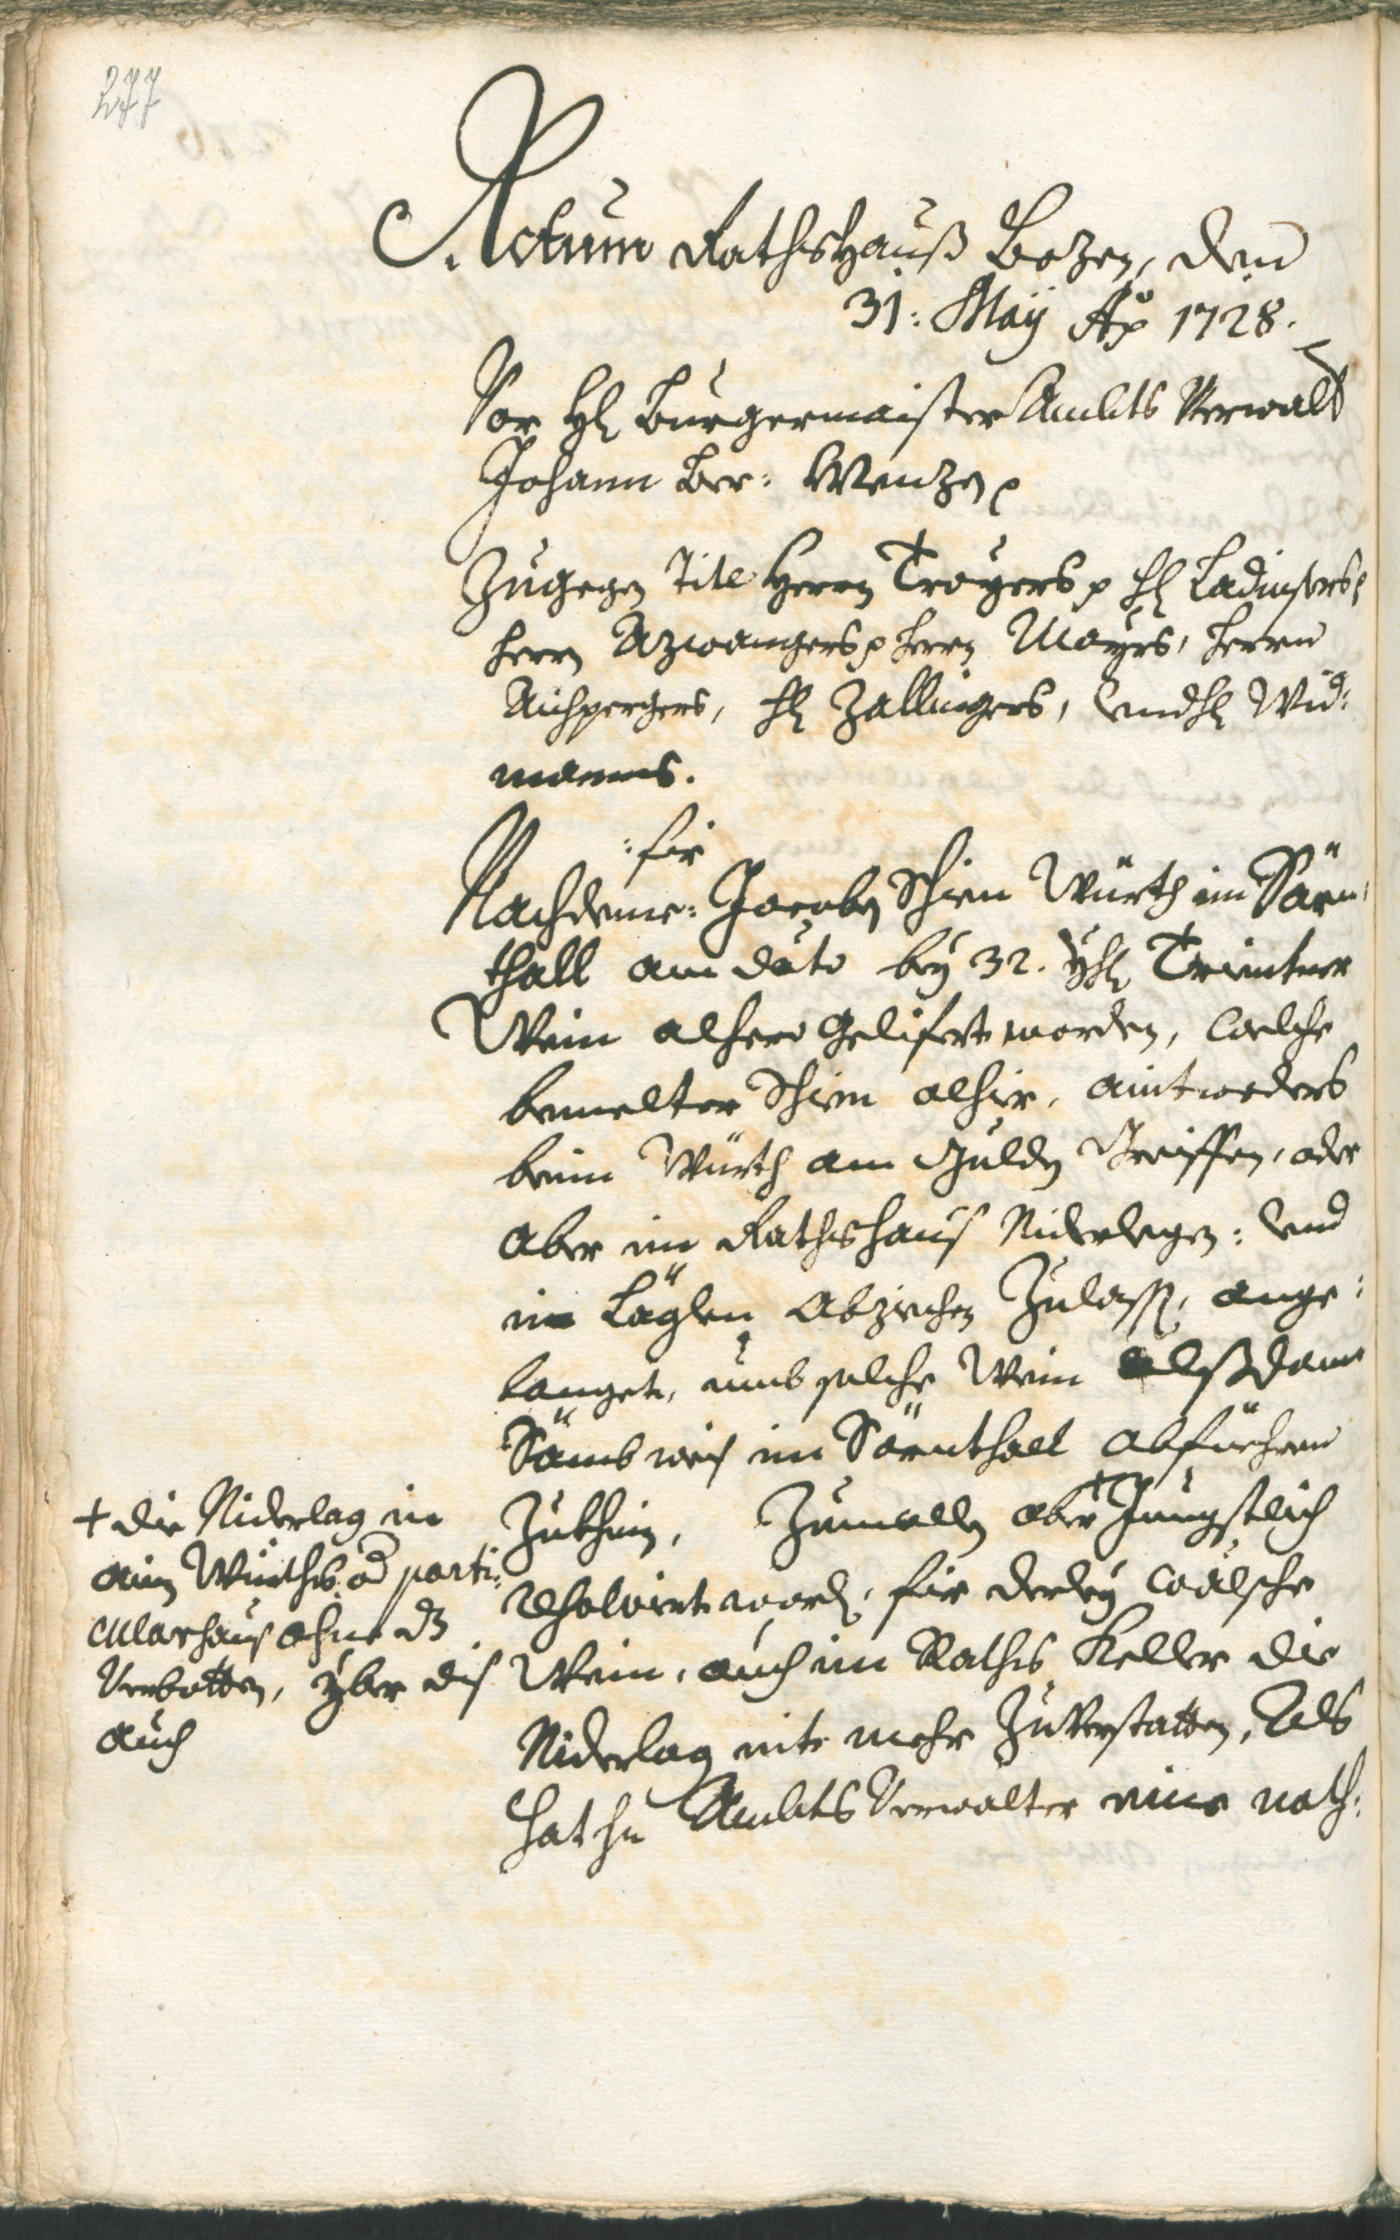 277
Actum Rathshauß Bozen, den
31: Maÿ Aõ 1728.
Vor H: Burgermaister Ambts Verwalt
Johann Ber: Wenzen p
Zugegen Titl Herrn Troyers p H: Ladinsers p
Herrn Azwangers p Herrn Mayrs, Herrn
Aichpergers, H: Zallingers, vnd H: Wid:
manns.
:fir
Nachdeme: Jacoben Thien Würth im Särn,
thall am dato bey 32. Yhr Trientner
Wein alhero gelifert worden, welche
bemelter Thien alhir, aintweders
beim Würth am gulden Greiffen, oder
aber im Rathshaus Niderlegen: vnd
in Läglen abziechen zulassen, ange:
langet, umb solche Wein alßdann
Sämbweis im Särnthall abfüehren
zukhinen, Zumallen aber + Jungstlich
resolvirt worden, fir derley wälsche
Wein, auch im Raths Keller die
Niderlag nit mehr zuverstatten, Als
hat H: Ambts Verwalter eine noth:
+ die Niderlag in
ainem Würths: od parti:
cularhaus ohne dz
Verbotten, yber dis
auch